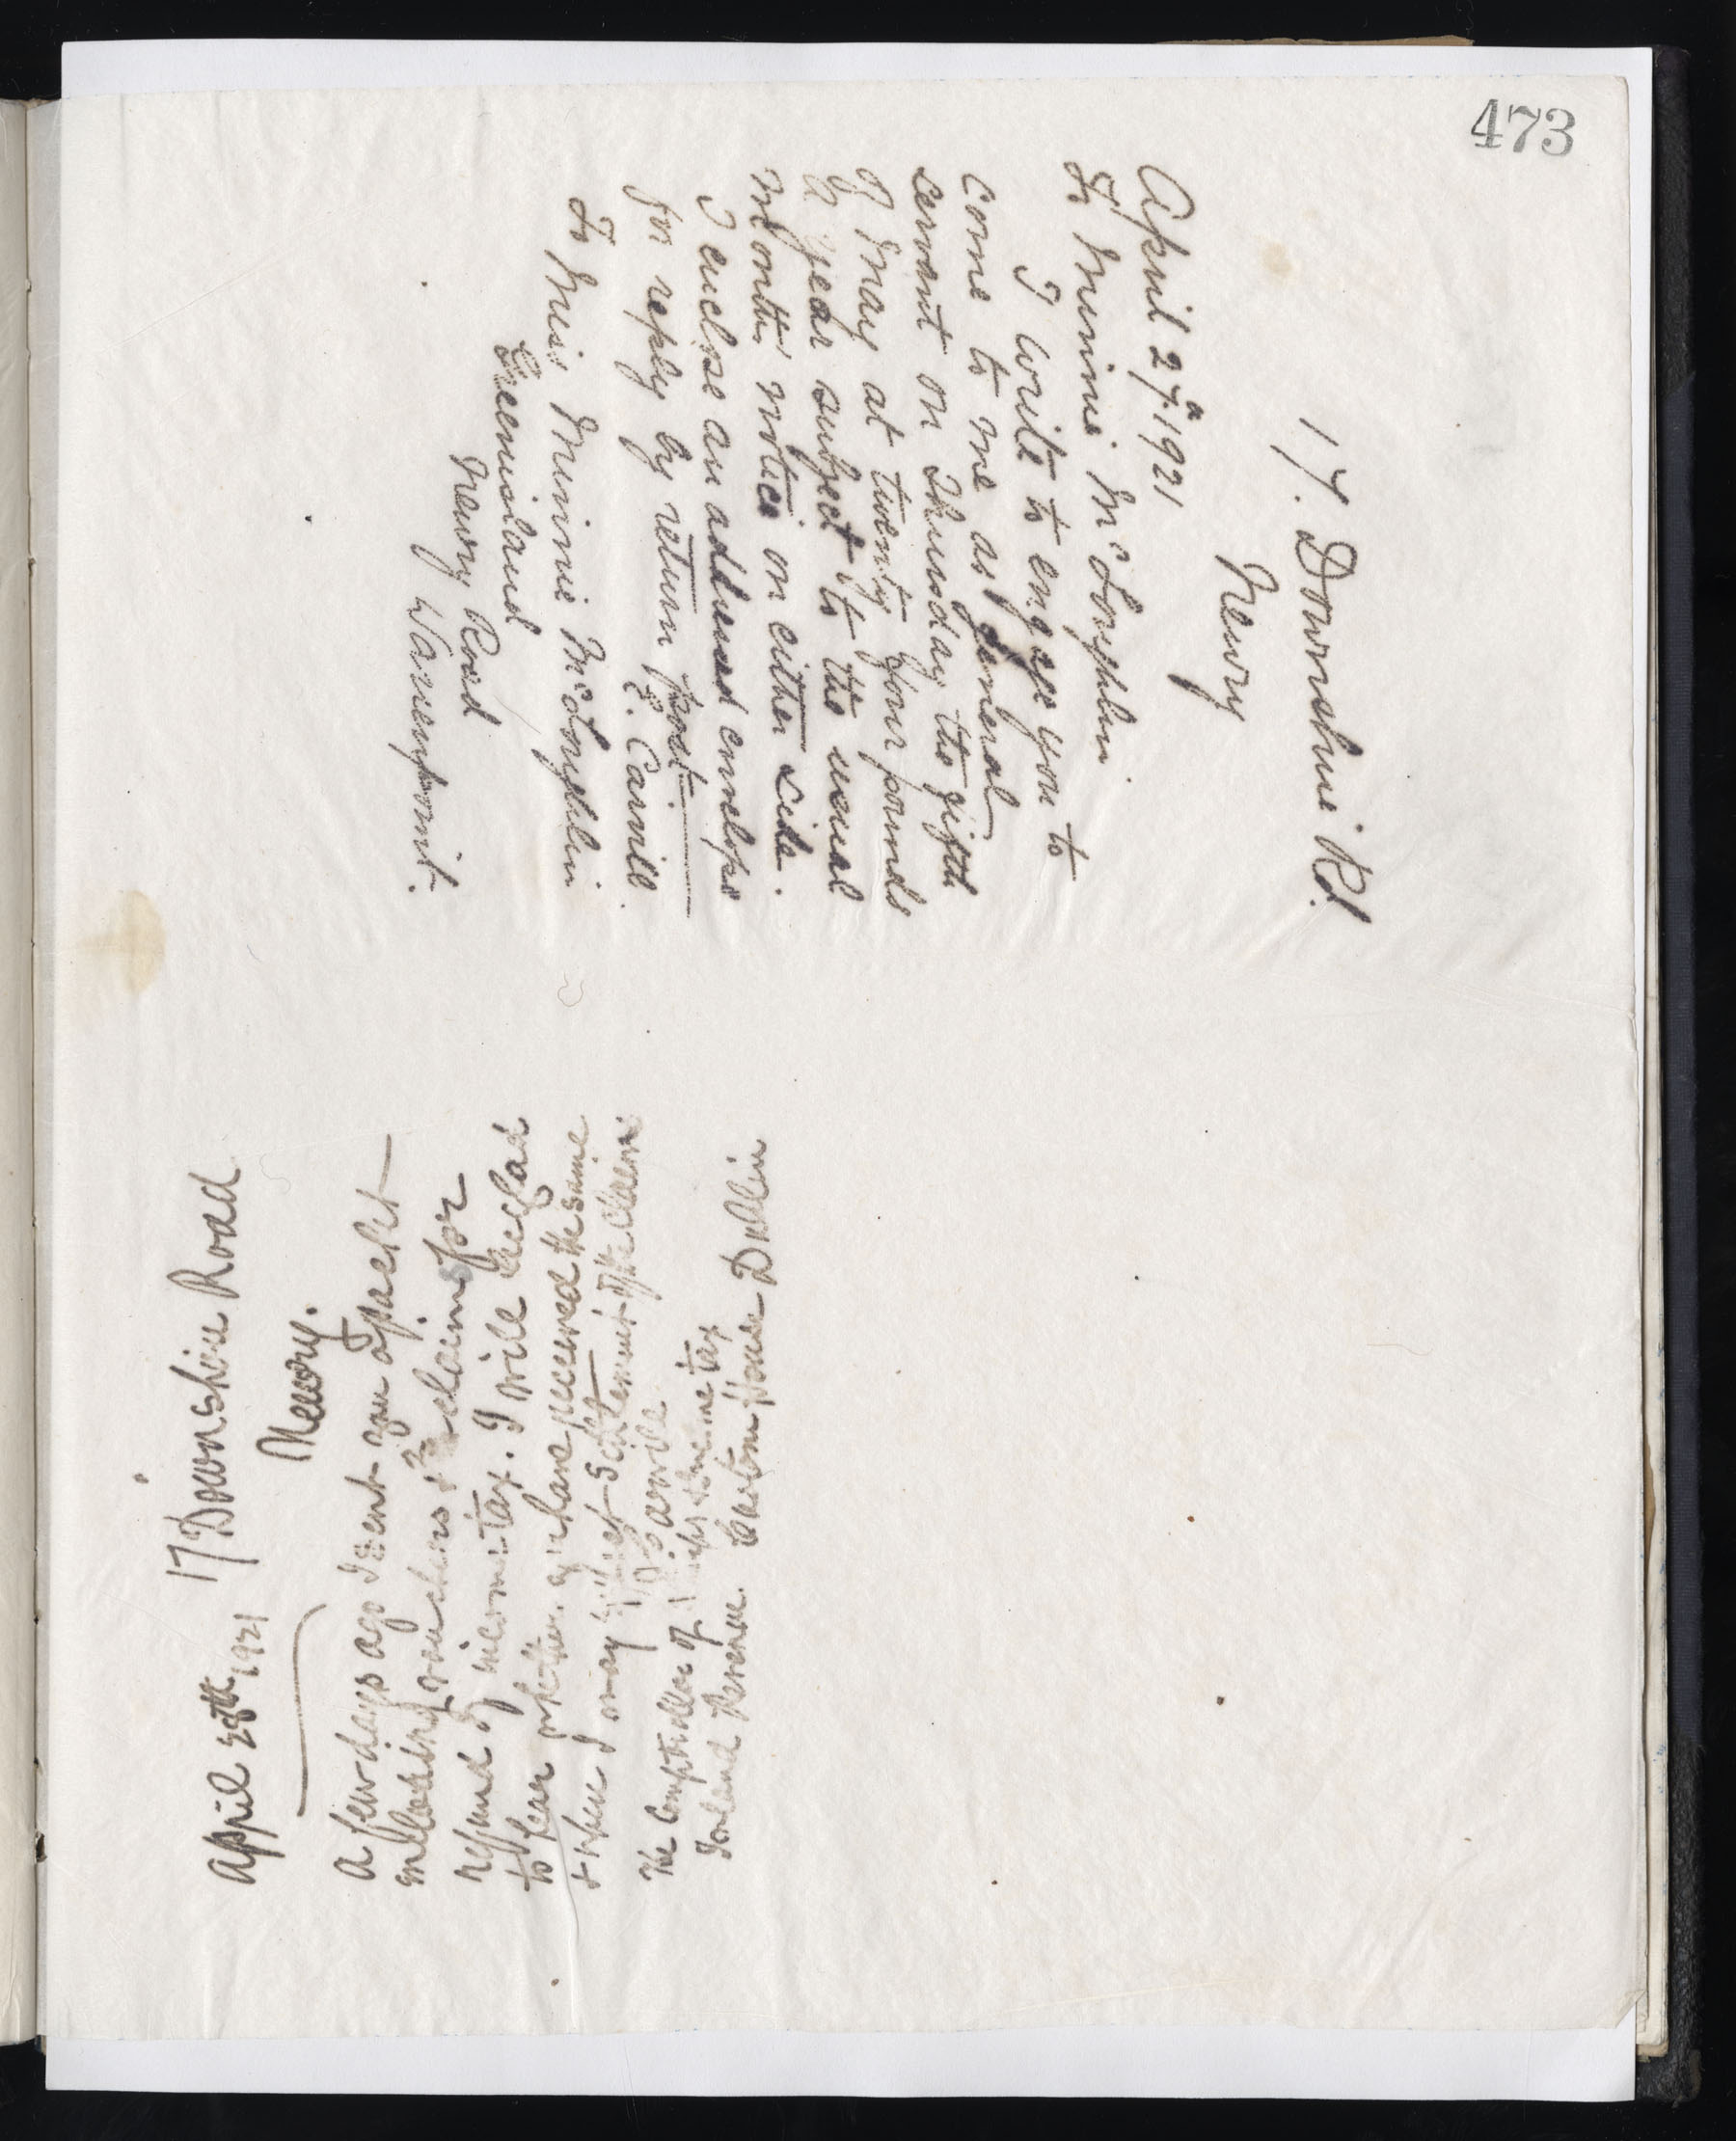 473
17. Downshire Rd.
Newry
April 27th 1921
To Minnie McLoughlin
I write to engage you to
come to me as general
servant on Thursday the fifth
of May at twenty four pounds
a year subject to the usual
months notice on either side.
I enclose an addressed envelope
for reply by return post
E. Carvill.
To Miss Minnie McLoughlin
Greenisland
Newry Road
Warrenpoint.
17 Downshire Road
April 28th 1921
Newry.
A few days ago I sent you a packet
enclosing vouchers & claim for
refund of income tax. I will be glad
to hear whether you have received the same
& when I may get settlement of the claim
Carvill
The Comptroller of income tax
Inland Revenue. Custom House Dublin